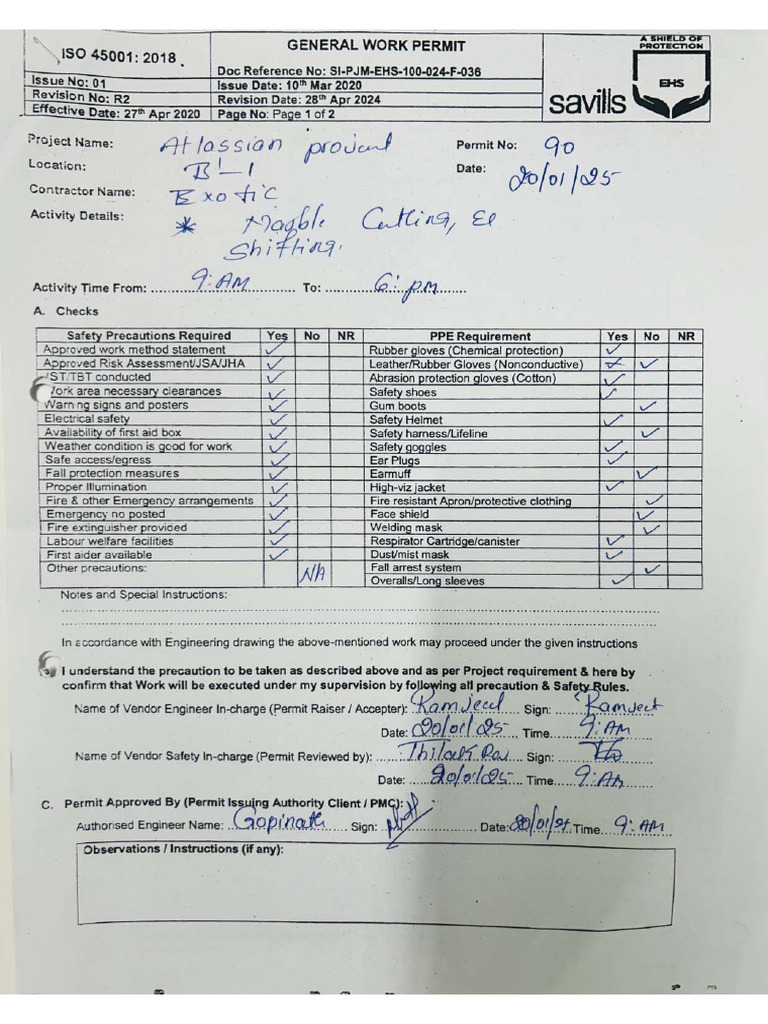 ISO 45001: 2018
GENERAL WORK PERMIT
A SHIELD OF PROTECTION
Doc Reference No: SI-PJM-EHS-100-024-F-036
Issue No: 01
Issue Date: 10th Mar 2020
EHS
Revision No: R2
Revision Date: 28th Apr 2024
savills
Effective Date: 27th Apr 2020
Page No: Page 1 of 2
Project Name: Atlassian Permit No: 90
Location: B-1 Date: 20/01/25
Contractor Name: Exotic
Activity Details: * Cutting,
Shifting.
Activity Time From: 9: AM To: 6: pm
A. Checks
Safety Precautions Required Yes No NR PPE Requirement Yes No NR
Approved work method statement ✓ Rubber gloves (Chemical protection) ✓
Approved Risk Assessment/JSA/JHA ✓ Leather/Rubber Gloves (Nonconductive) ✓
ST/TBT conducted ✓ Abrasion protection gloves (Cotton) ✓
Work area necessary clearances ✓ Safety shoes ✓
Warning signs and posters ✓ Gum boots ✓
Electrical safety ✓ Safety Helmet ✓
Availability of first aid box ✓ Safety harness/Lifeline ✓
Weather condition is good for work ✓ Safety goggles ✓
Safe access/egress ✓ Ear Plugs ✓
Fall protection measures ✓ Earmuff ✓
Proper Illumination ✓ High-viz jacket ✓
Fire & other Emergency arrangements ✓ Fire resistant Apron/protective clothing ✓
Emergency no posted ✓ Face shield ✓
Fire extinguisher provided ✓ Welding mask ✓
Labour welfare facilities ✓ Respirator Cartridge/canister ✓
First aider available ✓ Dust/mist mask ✓
Other precautions: NA Fall arrest system ✓
Overalls/Long sleeves ✓
Notes and Special Instructions:
In accordance with Engineering drawing the above-mentioned work may proceed under the given instructions
I understand the precaution to be taken as described above and as per Project requirement & here by
confirm that Work will be executed under my supervision by following all precaution & Safety Rules.
Name of Vendor Engineer In-charge (Permit Raiser / Accepter): Ramjeet Sign: Ramjeet
Date: 20/01/25 Time 9: AM
Name of Vendor Safety In-charge (Permit Reviewed by): Thilack Sign:
Date: 20/01/25 Time 9: AM
C. Permit Approved By (Permit Issuing Authority Client / PMC):
Authorised Engineer Name: Gopinath Sign: Date: 20/01/25 Time 9: AM
Observations / Instructions (if any):